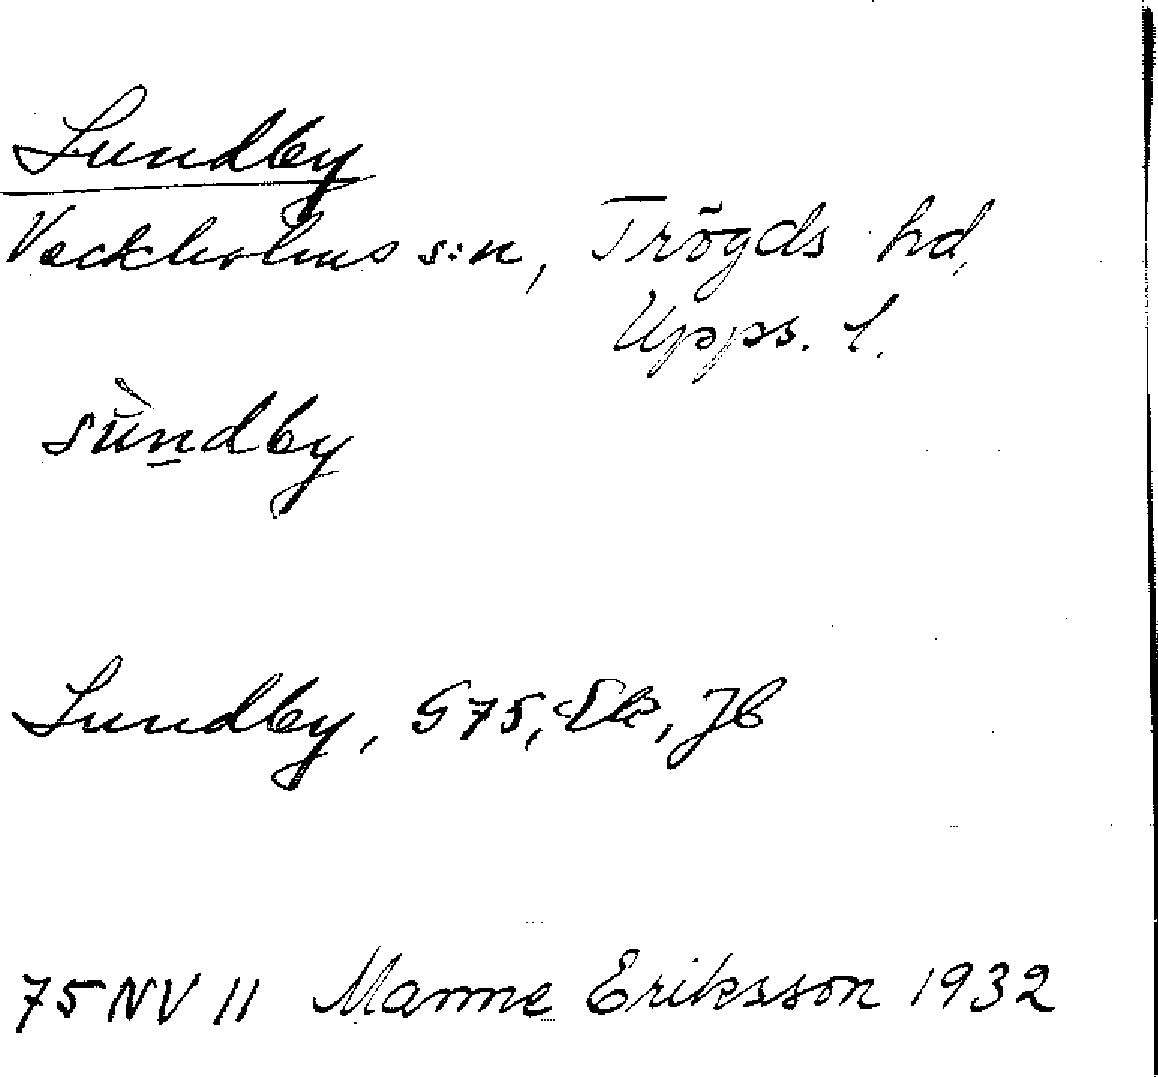 Sundby
Veckholms s:n, Trögds hd,
Upps. l.
sùndby
Sundby, G75, Ek, Jb
75 NV 11 Manne Eriksson 1932